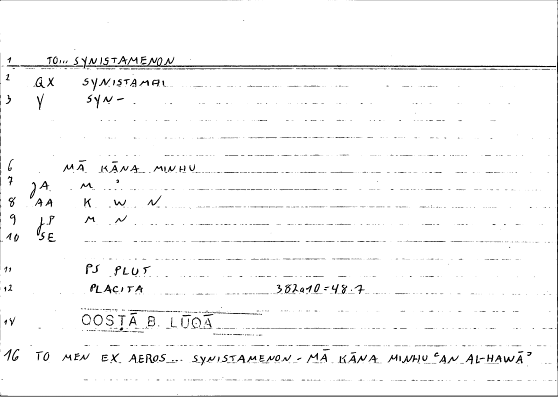 1 TO... SYNISTAMENON
2 QX SYNISTAMAI
3 V SYN-
6 MĀ KĀNA MINHU
7 JA M ʾ
8 AA K W N
9 LP M N
10 SE
11 PS PLUT
12 PLACITA 382a10=48.7
14 QOSṬĀ B. LŪQĀ
16 TO MEN EX AEROS... SYNISTAMENON - MĀ KĀNA MINHU ʿAN AL-HAWĀʾ